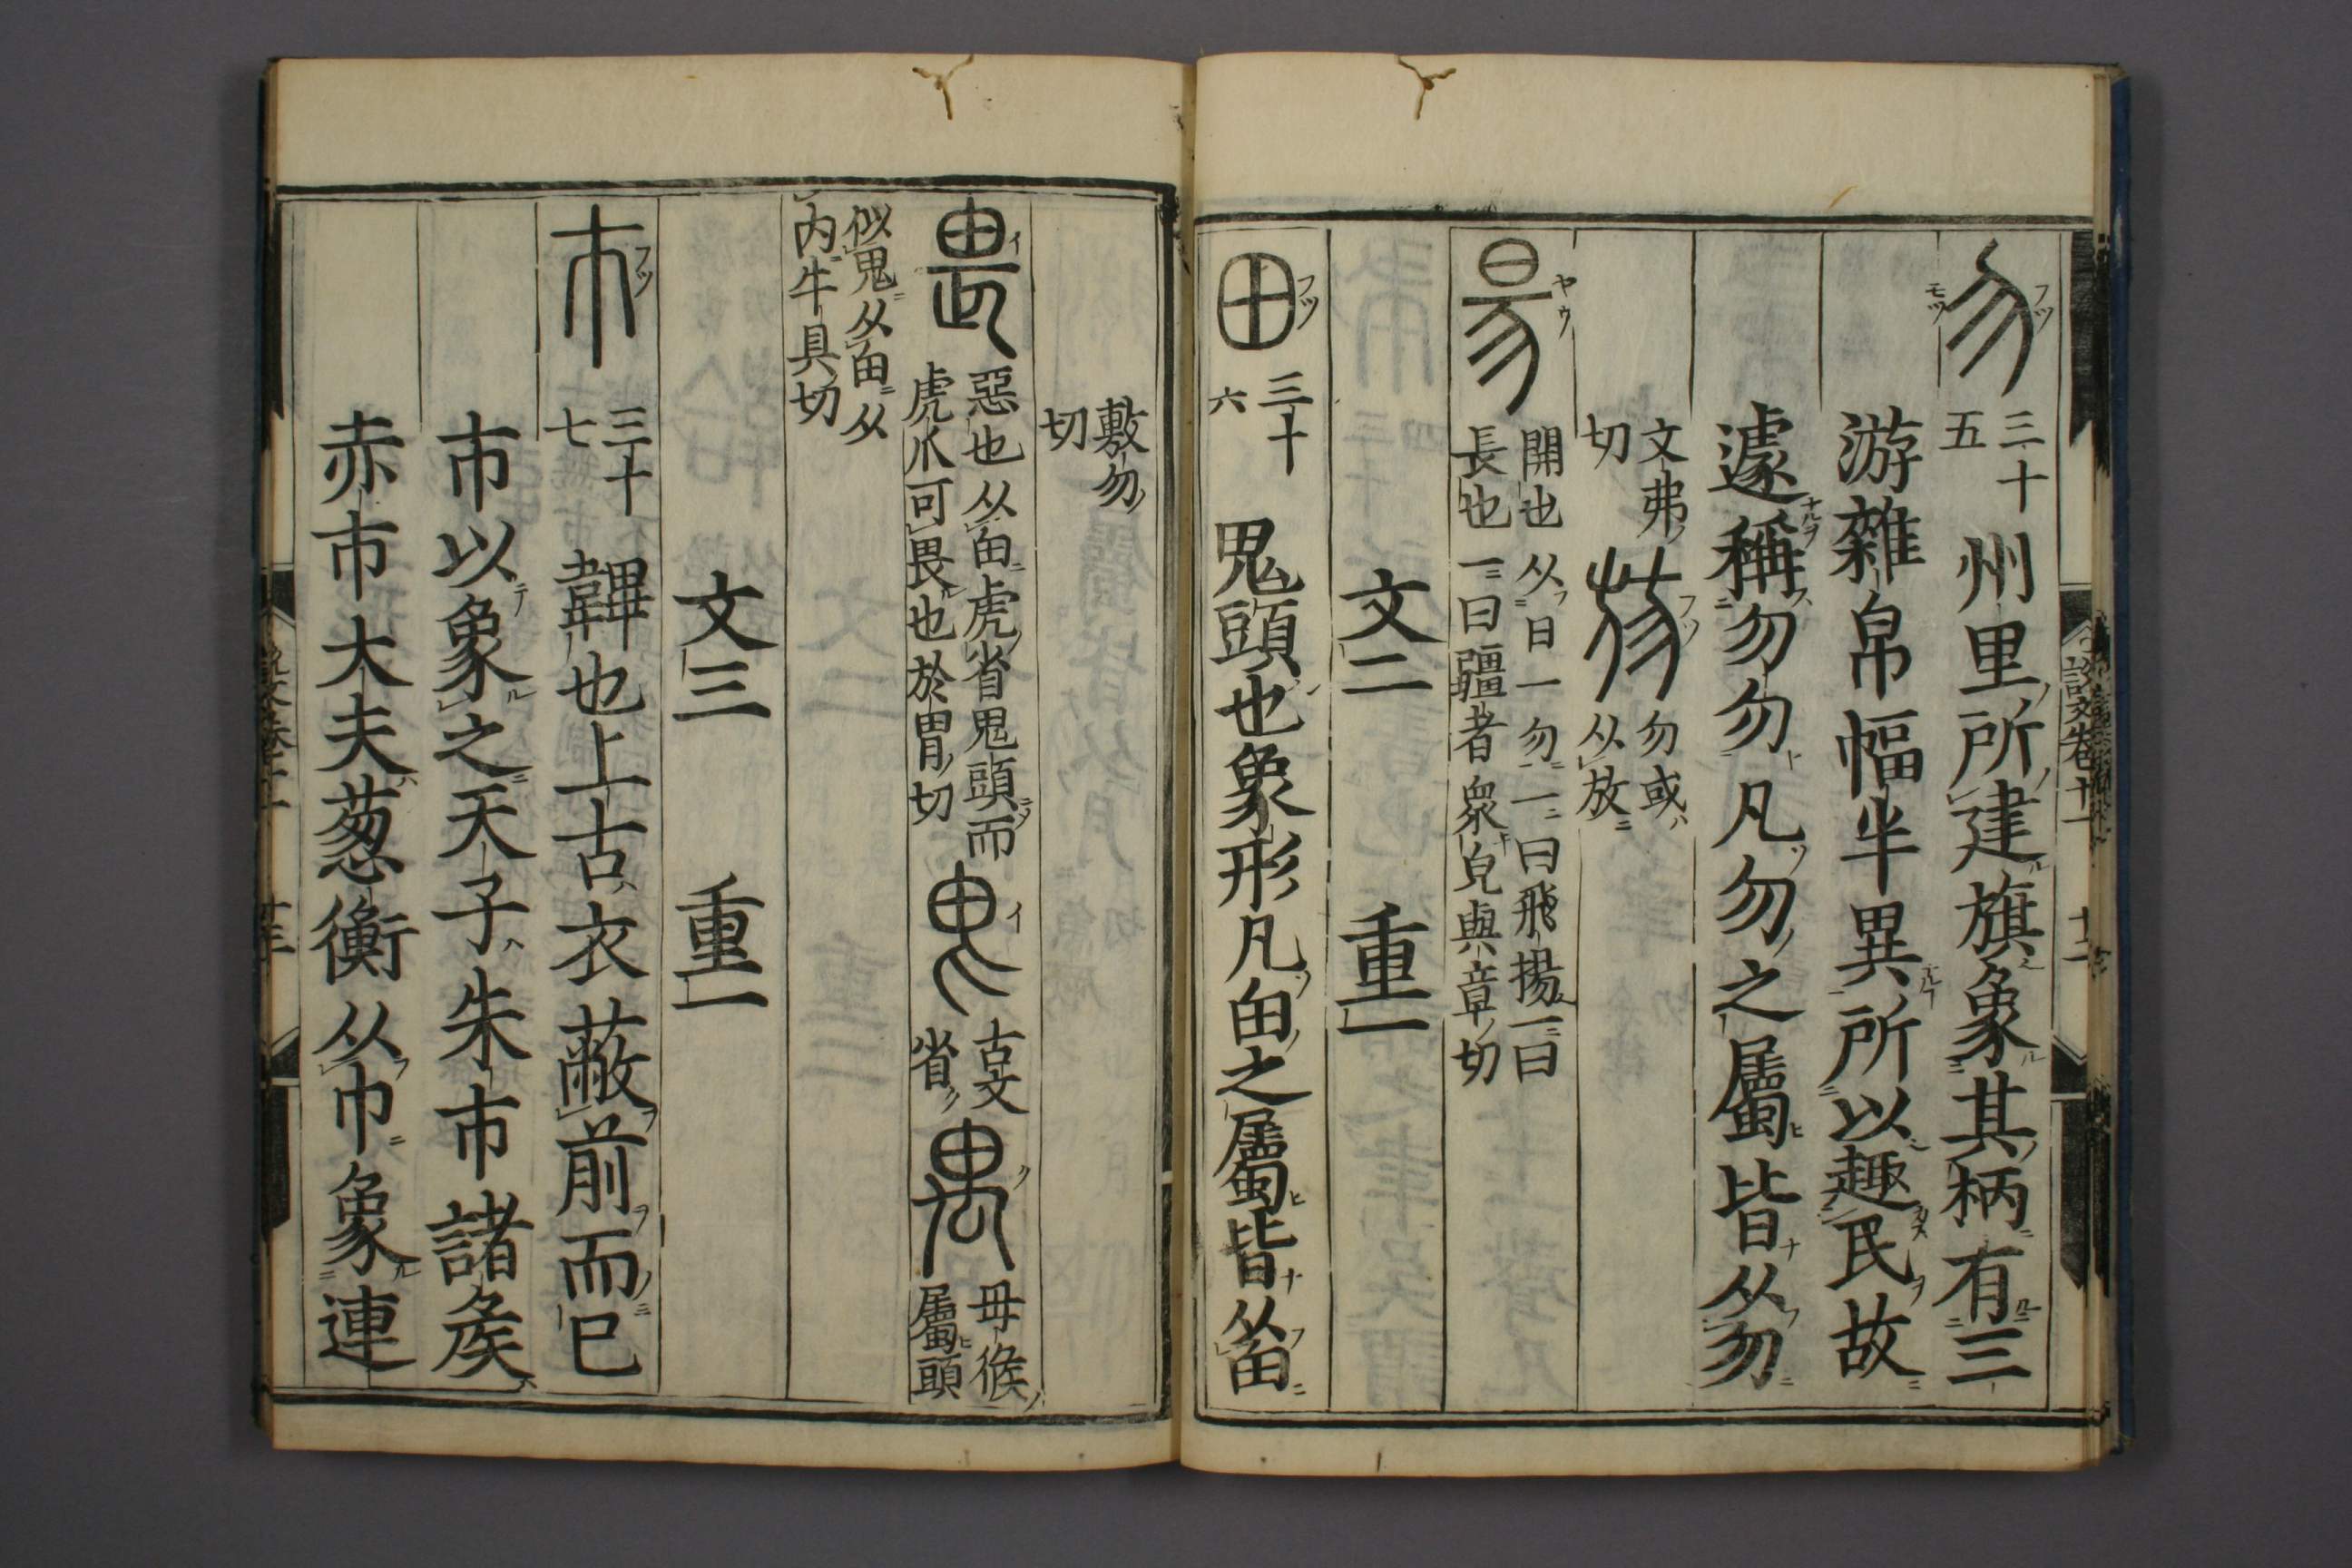 勿 三十五 州里所建旗象其柄有三
游雜帛幅半異所以趣民故
遽稱勿勿凡勿之屬皆从勿
文弗切 勿或从放
昜 開也从日一勿一曰飛揚一曰長也一曰彊者衆皃與章切
文二 重一
甶 三十六 鬼頭也象形凡甶之屬皆从甶
敷勿切
畏 惡也从甶虎省鬼頭而虎爪可畏也於胃切 古文省 禺 母猴屬頭
似鬼从甶从内牛具切
文三 重一
巿 三十七 韠也上古衣蔽前而已
巿以象之天子朱巿諸矦
赤巿大夫葱衡从巾象連